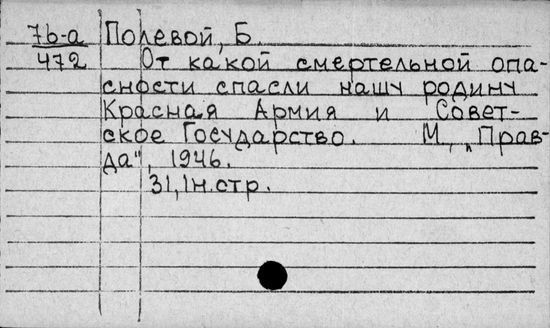 7b-a Полевой, Б.
472 От какой смертельной опа-
сности спасли нашу родину
Красная Армия и Совет-
ское Государство. М., „Прав-
да", 1946.
31, 1н.стр.